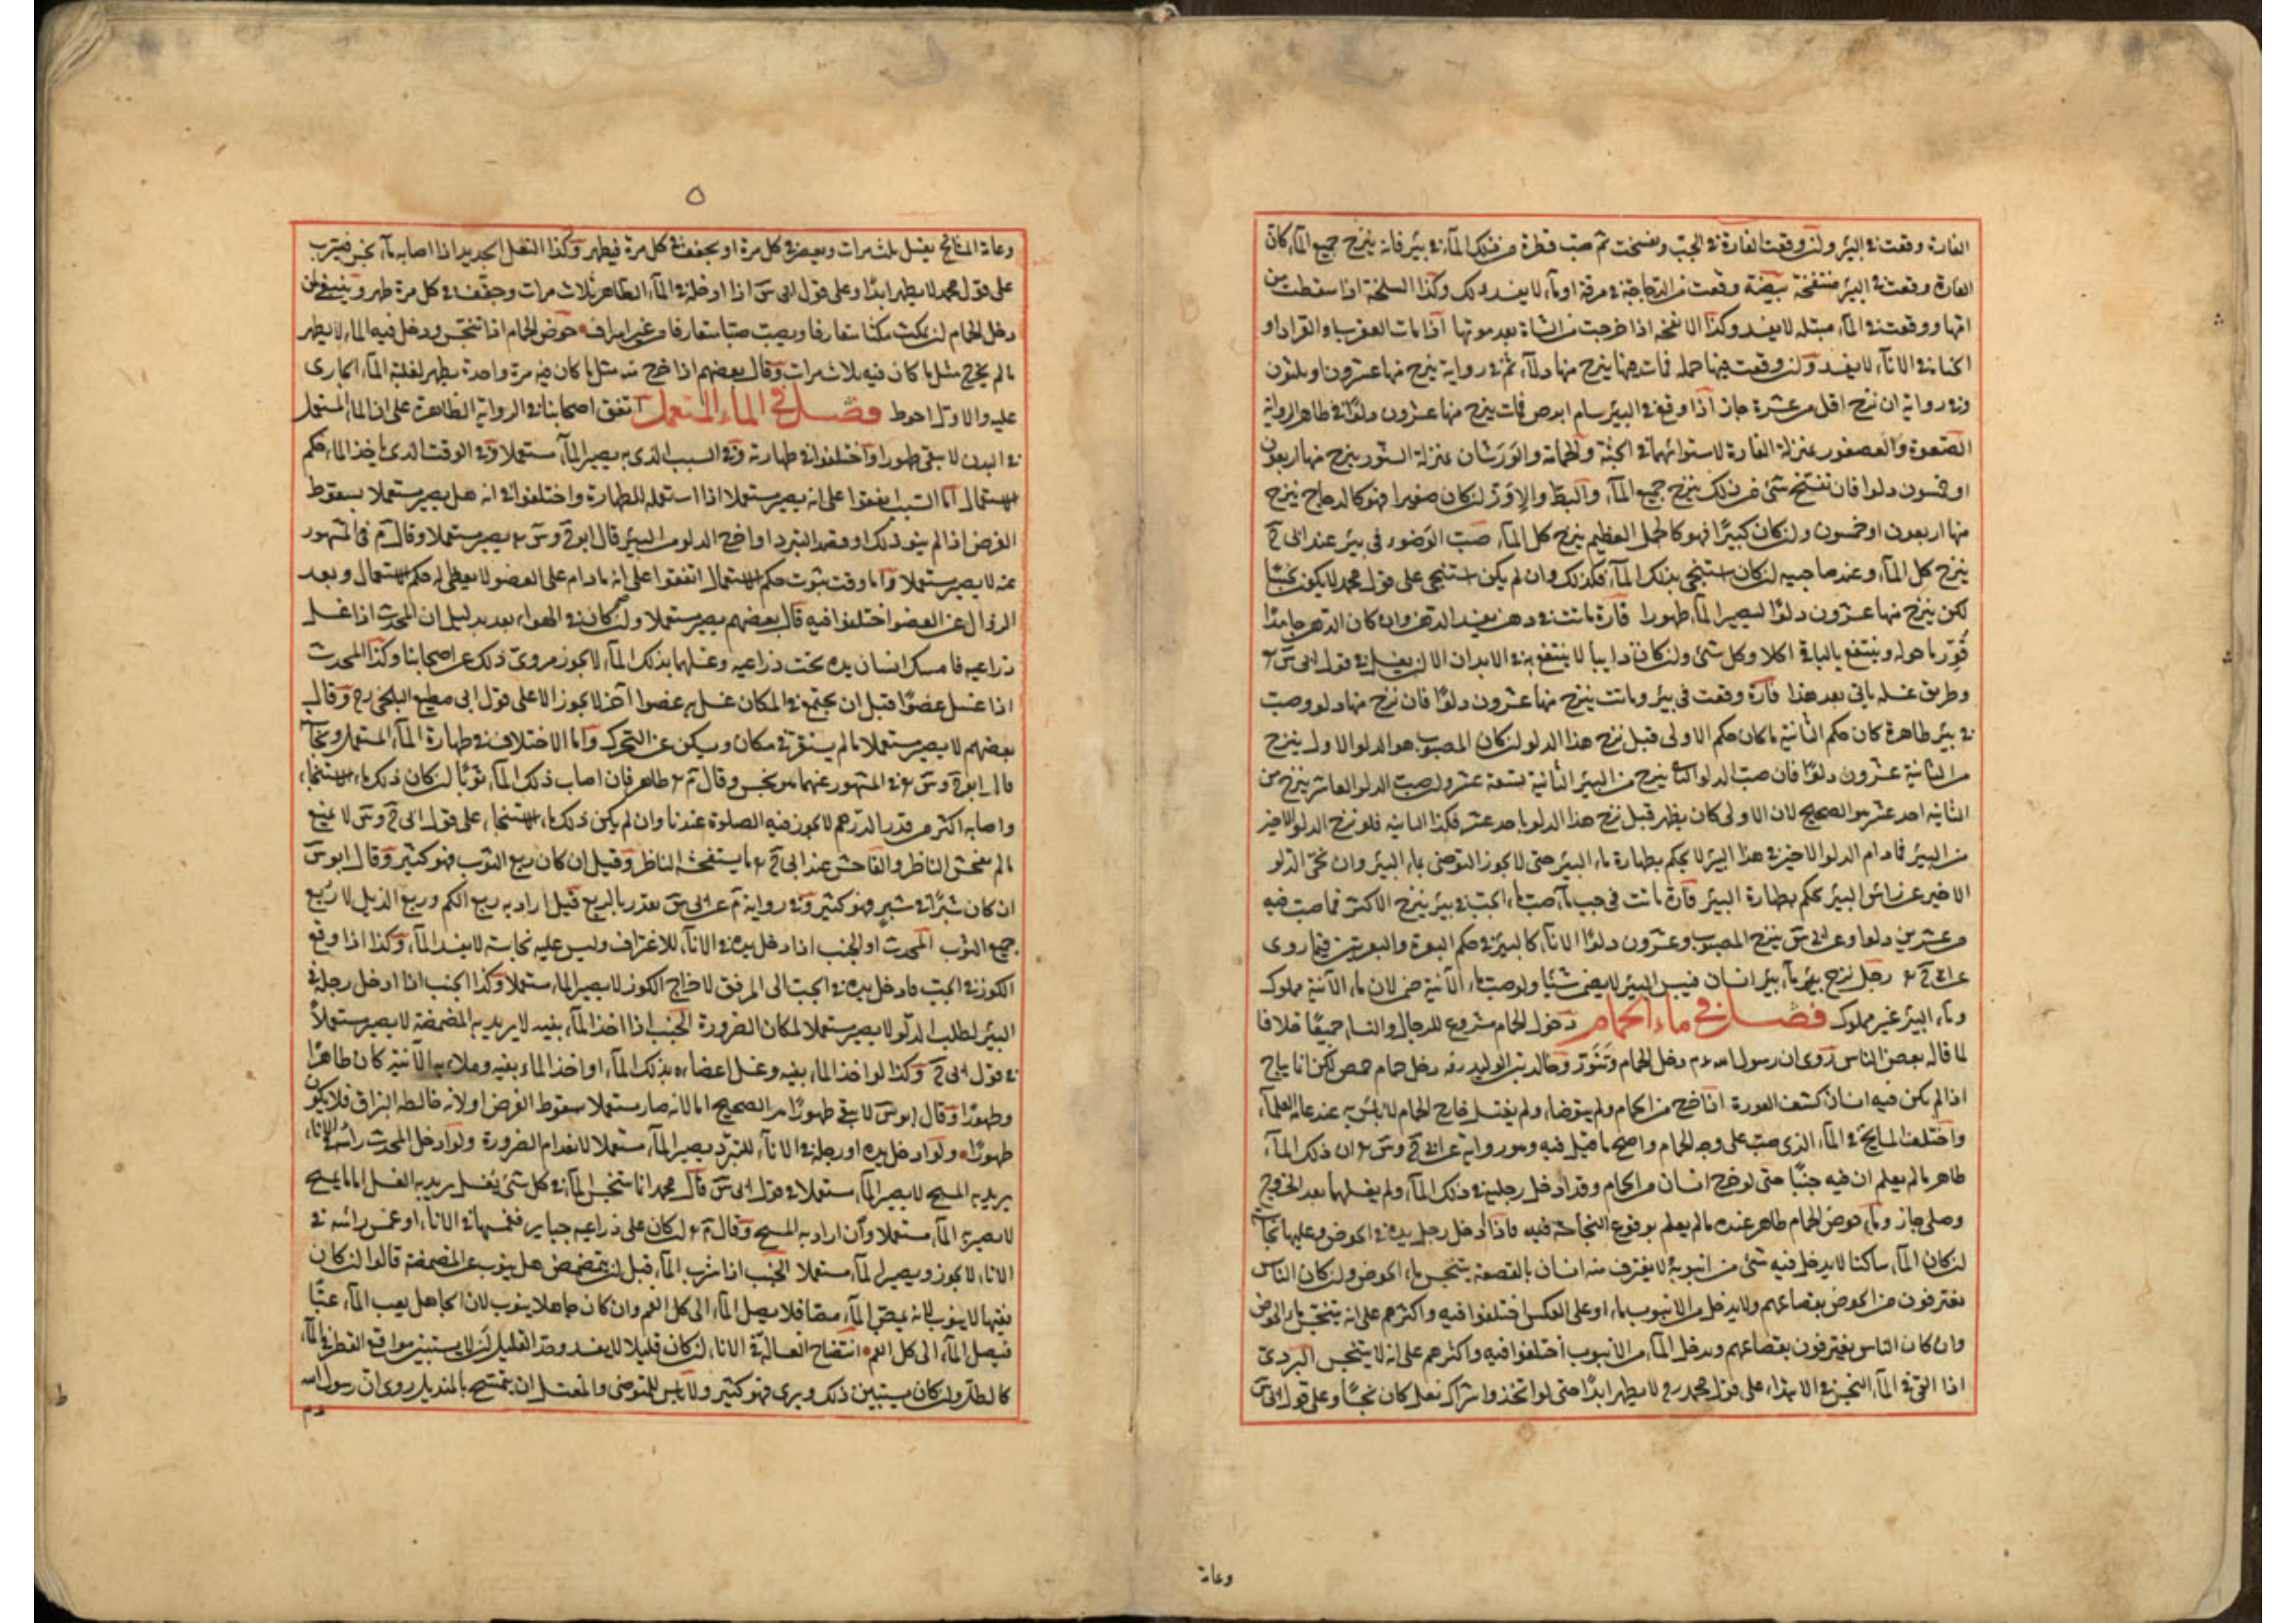 الفارة وقعت في البئر ولو وقعت الفارة في الحب وتفسخت ثم صب قطرة من ذلك الماء في بئر فانه ينزح جميع الماء كان
الفارة وقعت في البئر منتفخة بيضة وقعت من الدجاجة في مرقة او ماء لا يفسد ذلك وكذا السخلة اذا سقطت من
امها ووقعت في الماء مبتلة لا يفسد وكذا الانفحة اذا خرجت من الشاة بعد موتها اذا مات العقرب او القراد او
في الاناء لا يفسد ولو وقعت فيها فمات فيها ينزح منها دلاء ثم في رواية ينزح منها عشرون او ثلثون
وفي رواية ان نزح اقل من عشرة جاز اذا وقع في البئر سام ابرص فمات ينزح منها عشرون دلوا في ظاهر الرواية
الصعوة والعصفور بمنزلة الفارة لاستوائهما في الجثة والحمامة والورشان بمنزلة السنور ينزح منها اربعون
او خمسون دلوا فان تفسخ شئ من ذلك ينزح جميع الماء والبط والاوز ان كان صغيرا فهو كالدجاج ينزح
منها اربعون او خمسون وان كان كبيرا فهو كالحمل العظيم ينزح كل الماء صب الوضوء في بئر عند ابي ح
ينزح كل الماء وعند صاحبيه ان كان استنجى بذلك الماء فكذلك وان لم يكن استنجى على قول محمد لا يكون نجسا
لكن ينزح منها عشرون دلوا ليصير الماء طهورا فارة ماتت في دهن يفسد الدهن وان كان الدهن جامدا
قور ما حوله وينتفع بالباقي اكلا وكل شئ وان كان ذايبا لا ينتفع به في الابدان الا ان يغسل في قول ابي س
وطريق غسله ياتي بعد هذا فارة وقعت في بئر وماتت ينزح منها عشرون دلوا فان نزح منها دلو وصب
في بئر طاهرة كان حكم الثانية ما كان حكم الاولى قبل نزح هذا الدلو ان كان المصبوب هو الدلو الاول ينزح
من الثانية عشرون دلوا فان صب الدلو ينزح من البئر الثانية تسعة عشر ولو صب الدلو العاشر ينزح من
الثانية احد عشر هو الصحيح لان الاولى كان يطهر قبل نزح هذا الدلو باحد عشر فكذا الثانية فلو نزح الدلو الاخير
من البئر فما دام الدلو الاخير في هذا البئر لا يحكم بطهارة ماء البئر حتى لا يجوز التوضي بماء البئر وان نحي الدلو
الاخير عن راس البئر يحكم بطهارة البئر فارة ماتت في حب ماء صب ماء الحب في بئر ينزح الاكثر مما صب فيه
من عشرين دلوا وعن ابي س ينزح المصبوب وعشرون دلوا الاناء كالبئر في حكم البعرة والبعرتين فيما روى
عن ابي ح رجل نزح ماء بئر انسان فيبس البئر لا يضمن شيئا ولو صب ماء الآنية ضمن لان ماء الآنية مملوك
وماء البئر غير مملوك فصل في ماء الحمام دخول الحمام مشروع للرجال والنساء جميعا خلافا
لما قاله بعض الناس روى ان رسول الله دخل الحمام وتنور وخالد بن الوليد دخل حمام حمص لكن انما يباح
اذا لم يكن فيه انسان كشف العورة اذا خرج من الحمام ولم يتوضأ ولم يغتسل خارج الحمام لا باس به عند عامة العلماء
واختلف المشايخ في الماء الذي صب على وجه الحمام واصح ما قيل فيه وهو رواية عن ابي ح وس ان ذلك الماء
طاهر ما لم يعلم ان فيه جنبا حتى لو خرج انسان من الحمام وقد ادخل رجليه في ذلك الماء ولم يغسلهما بعد الخروج
وصلى جاز وماء حوض الحمام طاهر عنده ما لم يعلم بوقوع النجاسة فيه فاذا ادخل رجل يده في الحوض وعليها نجاسة
ان كان الماء ساكنا لا يدخل فيه شئ من انبوبة لا يغترف منه انسان بالقصعة يتنجس ماء الحوض وان كان الناس
يغترفون من الحوض بقصاعهم ولا يدخل من الانبوب ماء او على العكس اختلفوا فيه واكثرهم على انه يتنجس ماء الحوض
وان كان الناس يغترفون بقصاعهم ويدخل الماء من الانبوب اختلفوا فيه واكثرهم على انه لا يتنجس البردي
اذا القي في الماء النجس في الابتداء على قول محمد رح لا يطهر ابدا حتى لو اتخذوا شراك نعل كان نجسا وعلى قول ابي س
وعامة
٥
وعامة المشايخ يغسل ثلث مرات ويعصر في كل مرة او يجفف في كل مرة فيطهر وكذا النعل الجديد اذا اصابه ماء نجس فيشرب
على قول محمد لا يطهر ابدا وعلى قول ابي س اذا ادخله في الماء الطاهر ثلاث مرات وجففه في كل مرة طهر وينبغي لمن
دخل الحمام ان يمكث مكثا متعارفا ويصب صبا متعارفا من غير اسراف حوض الحمام اذا تنجس ودخل فيه الماء لا يطهر
ما لم يخرج مثل ما كان فيه ثلاث مرات وقال بعضهم اذا خرج منه مثل ما كان فيه مرة واحدة يطهر لغلبة الماء الجاري
عليه والاول احوط فصل في الماء المستعمل اتفق اصحابنا في الرواية الظاهرة على ان الماء المستعمل
في البدن لا يبقى طهورا واختلفوا في طهارته وفي السبب الذي به يصير الماء مستعملا وفي الوقت الذي ياخذ الماء حكم
الاستعمال اما السبب اتفقوا على انه يصير مستعملا اذا استعمله للطهارة واختلفوا في انه هل يصير مستعملا بسقوط
الفرض اذا لم ينو ذلك او قصد التبرد او اخرج الدلو من البئر قال ابو ح وس يصير مستعملا وقال م في المشهور
عنه لا يصير مستعملا واما وقت ثبوت حكم الاستعمال اتفقوا على انه ما دام على العضو لا يعطى له حكم الاستعمال وبعد
الزوال عن العضو اختلفوا فيه قال بعضهم يصير مستعملا وان كان في الهواء بعد بدليل ان المحدث اذا غسل
ذراعيه فامسك انسان يده تحت ذراعيه وغسلهما بذلك الماء لا يجوز مروي ذلك عن اصحابنا وكذا المحدث
اذا غسل عضوا قبل ان يجتمع في المكان غسل به عضوا آخر لا يجوز الا على قول ابي مطيع البلخي رح وقال
بعضهم لا يصير مستعملا ما لم يستقر في مكان ويسكن عن التحرك واما الاختلاف في طهارة الماء المستعمل ونجاسته
قال ابو ح وس في المشهور عنهما هو نجس وقال م طاهر فان اصاب ذلك الماء ثوبا ان كان ذلك ماء الاستنجاء
واصابه اكثر من قدر الدرهم لا يجوز فيه الصلوة عندنا وان لم يكن ذلك ماء الاستنجاء على قول ابي ح وس لا يمنع
ما لم يفحش الناظر والفاحش عند ابي ح ما يستفحشه الناظر وقيل ان كان ربع الثوب فهو كثير وقال ابو س
ان كان شبرا في شبر فهو كثير وفي رواية م عن ابي س يقدر بالربع قيل اراد به ربع الكم وربع الذيل لا ربع
جميع الثوب المحدث او الجنب اذا ادخل يده في الاناء للاغتراف وليس عليه نجاسة لا يفسد الماء وكذا اذا وقع
الكوز في الحب فادخل يده في الحب الى المرفق لاخراج الكوز لا يصير الماء مستعملا وكذا الجنب اذا ادخل رجله في
البئر لطلب الدلو لا يصير مستعملا لمكان الضرورة الجنب اذا اخذ الماء بفيه لا يريد به المضمضة لا يصير مستعملا
في قول ابي ح وكذا لو اخذ الماء بفيه وغسل اعضاءه بذلك الماء او اخذ الماء بفيه وملأ به الآنية كان طاهرا
وطهورا وقال ابو س لا يبقى طهورا هو الصحيح اما لانه صار مستعملا بسقوط الفرض او لانه خالطه البزاق فلا يكون
طهورا ولو ادخل يده او رجله في الاناء للتبرد يصير الماء مستعملا لانعدام الضرورة ولو ادخل المحدث راسه في الاناء
يريد به المسح لا يصير الماء مستعملا في قول ابي س قال محمد انما يتنجس الماء في كل شئ يغسل يريد به الغسل اما ما يمسح
لا يصير به الماء مستعملا وان اراد به المسح وقال م ان كان على ذراعيه جباير فغمسها في الاناء او غمس راسه في
الاناء لا يجوز ويصير الماء مستعملا الجنب اذا شرب الماء قبل ان يتمضمض هل ينوب عن المضمضة قالوا ان كان
فقيها لا ينوب لانه يمص الماء مصا فلا يصل الماء الى كل الفم وان كان جاهلا ينوب لان الجاهل يعب الماء عبا
فيصل الماء الى كل الفم انتضاح الغسالة في الاناء ان كان قليلا لا يفسد وحد القليل ان لا يستبين مواقع القطر في الماء
كالطل وان كان يستبين ذلك ويرى فهو كثير ولا باس للمتوضي والمغتسل ان يتمسح بالمنديل روى ان رسول الله